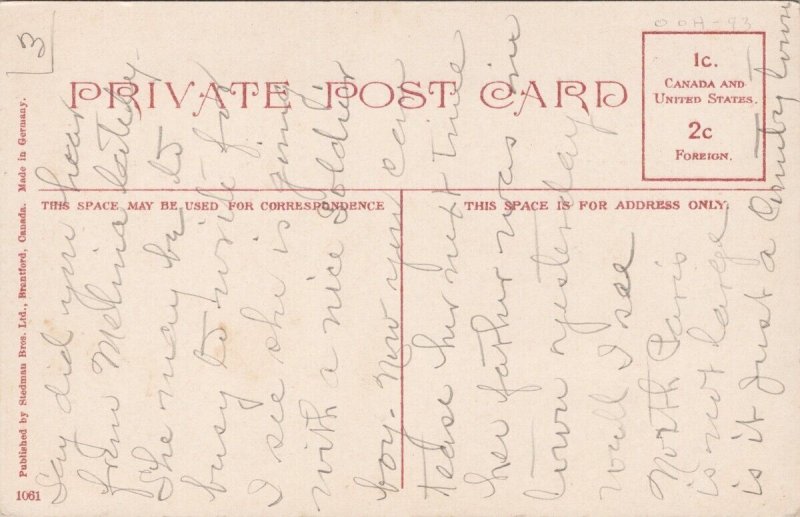 3
00A-93
PRIVATE POST CARD
1c.
CANADA AND
UNITED STATES.
2c
FOREIGN.
THIS SPACE MAY BE USED FOR CORRESPONDENCE
THIS SPACE IS FOR ADDRESS ONLY.
Published by Stedman Bros. Ltd., Brantford, Canada. Made in Germany.
1061
Say did you hear
from Melvina lately.
She may be to
busy to write for
I see she is going
with a nice Soldier
boy. Now you can
tease her next time
her father was in
town yesterday
well I see
North Paris
is not large
is it Just a Country town